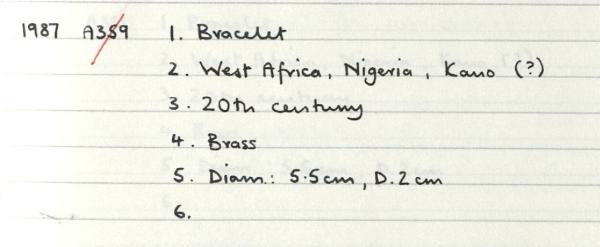 1987 A359 1. Bracelet
2. West Africa, Nigeria, Kano (?)
3. 20th century
4. Brass
5. Diam.: 5.5cm, D. 2cm
6.